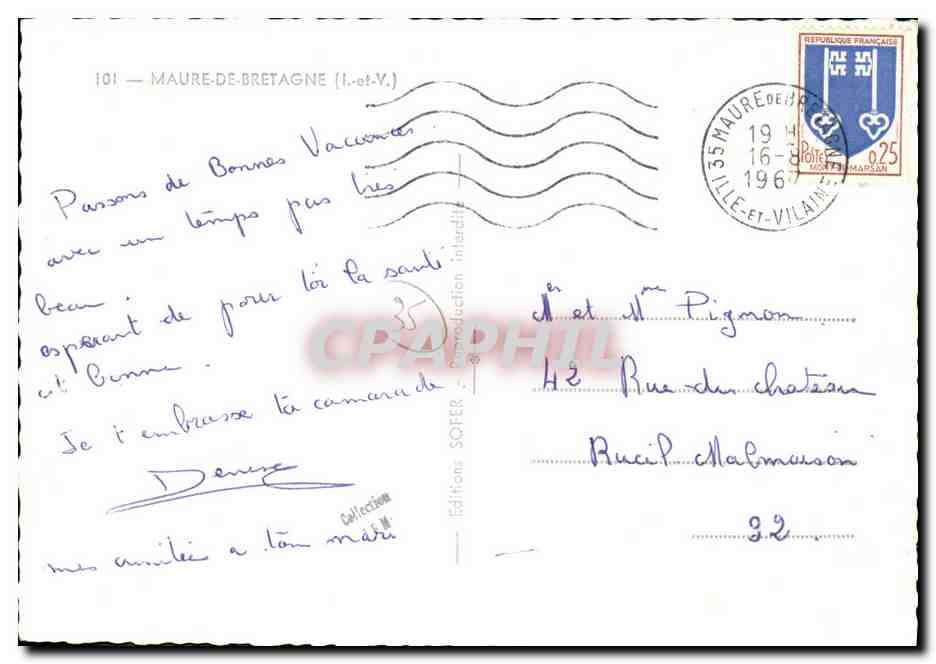 101 — MAURE-DE-BRETAGNE (I.-et-V.)
Passons de Bonnes Vacances
avec un temps pas très
beau.
esperant de pour toi la santé
est bonne.
Je t'embrasse ta camarade
Denise
mes amitiés a ton mari
35
Collection
Editions SOFER - Reproduction interdite
CPAPHIL
REPUBLIQUE FRANÇAISE
POSTES
0,25
MONT-DE-MARSAN
35 MAURE DE BRETAGNE
19 H
16-8
196
ILLE-ET-VILAINE
Mr et Mme Pignon
42 Rue du chateau
Rueil Malmaison
92.